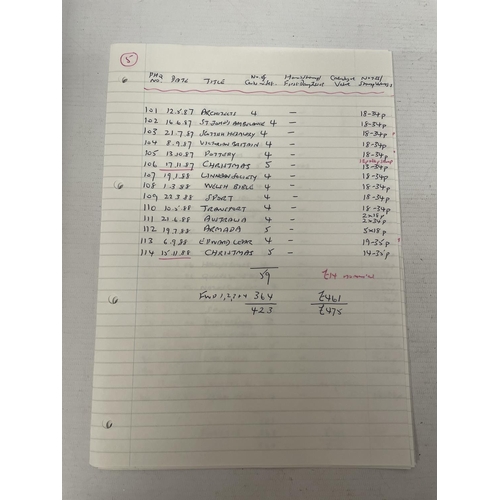 5
PHQ No DATE TITLE No of Cards Hand Stamp/ First Day Catalogue Value Notes/
101 12.5.87 ARCHITECTS 4 — 18-34p
102 16.6.87 ST JOHNS AMBULANCE 4 — 18-34p
103 21.7.87 SCOTTISH HERALDRY 4 — 18-34p
104 8.9.87 VICTORIAN BRITAIN 4 — 18-34p
105 13.10.87 POTTERY 4 — 18-34p
106 17.11.87 CHRISTMAS 5 — 13-34p
107 19.1.88 LINNEAN SOCIETY 4 — 18-34p
108 1.3.88 WELSH BIBLE 4 — 18-34p
109 22.3.88 SPORT 4 — 18-34p
110 10.5.88 TRANSPORT 4 — 18-34p
111 21.6.88 AUSTRALIA 4 — 2x18p 2x34p
112 19.7.88 ARMADA 5 — 5x18p
113 6.9.88 EDWARD LEAR 4 — 19-35p
114 15.11.88 CHRISTMAS 5 — 14-35p
59 £14 nominal
Fwd 1,2,3+4 364 £461
423 £475